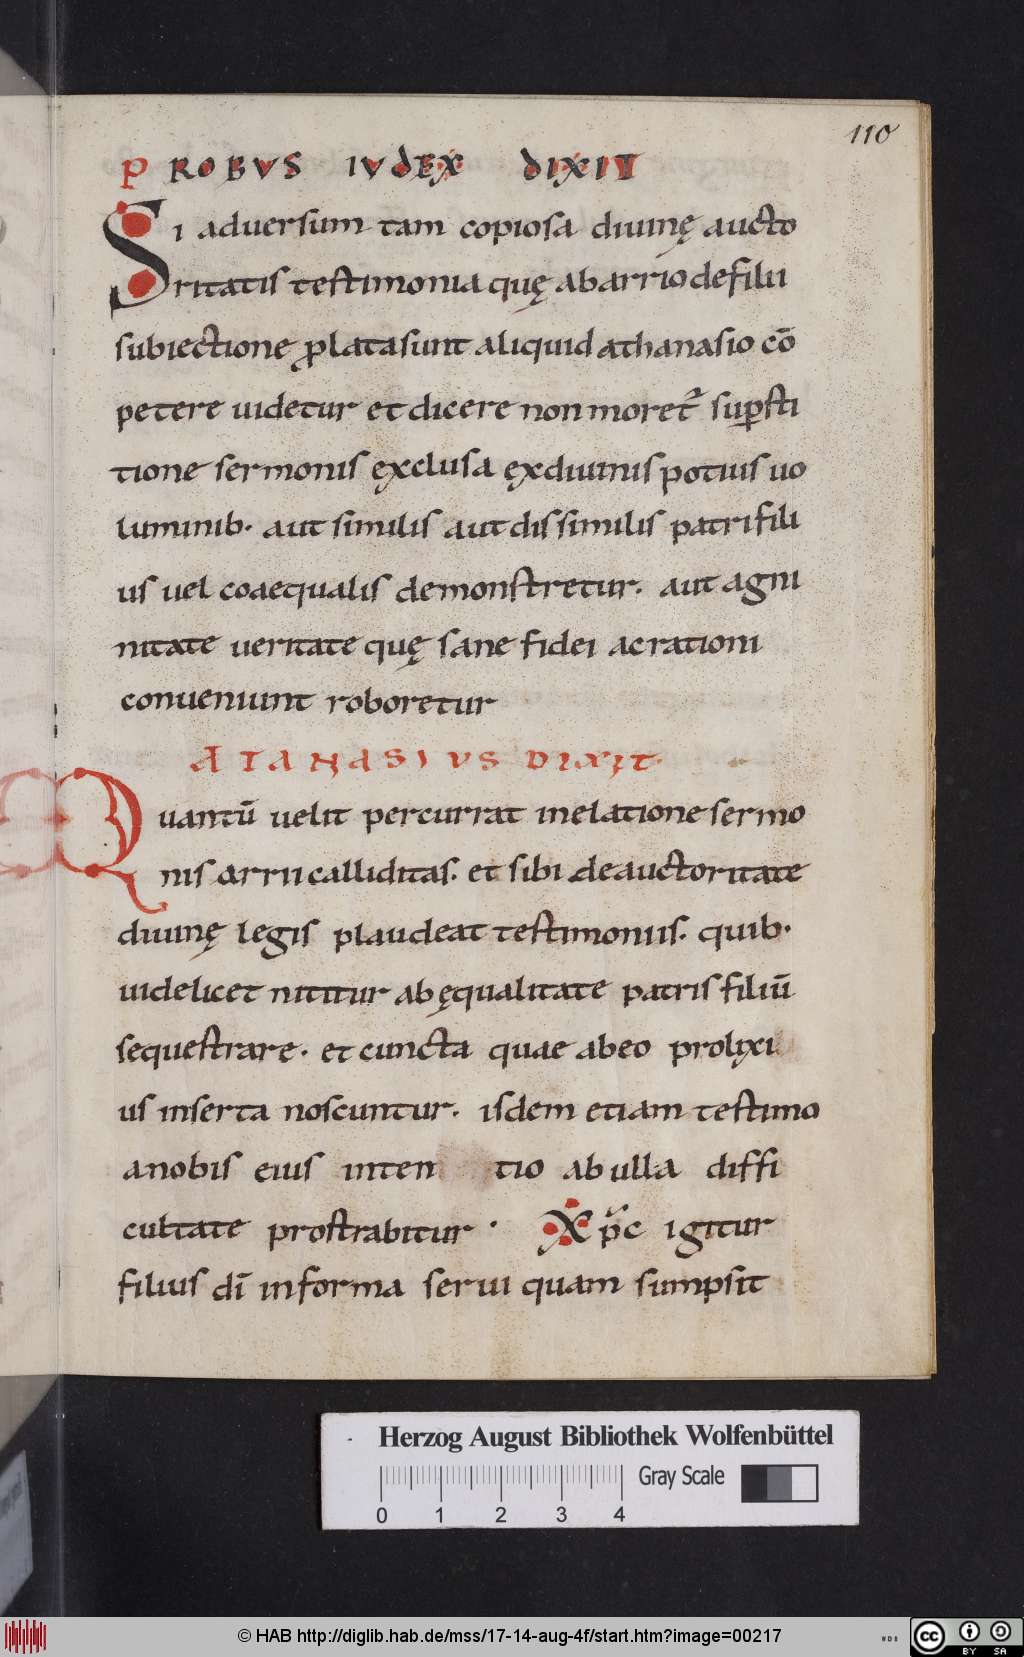 110
PROBVS IVDEX DIXIT
Si aduersum tam copiosa diuinę aucto
ritatis testimonia quę ab arrio de filii
subiectione ꝓlata sunt aliquid athanasio cō
petere uidetur et dicere non moret᷑ suꝑsti
tione sermonis exclusa ex diuinis potius uo
luminib· aut similis aut dissimilis patri fili
us uel coaequalis demonstretur. aut agni
nitate ueritate quę sane fidei ac rationi
conueniunt roboretur
ATANASIVS DIXIT·
Quantū uelit percurrat in elatione sermo
nis arrii calliditas. et sibi de auctoritate
diuinę legis plaudeat testimoniis. quib·
uidelicet nititur ab ęqualitate patris filiū
sequestrare. et cuncta quae ab eo prolixi
us inserta noscuntur. isdem etiam testimo
a nobis eius inten tio ab ulla diffi
cultate prostrabitur · Xp̄c igitur
filius dī in forma serui quam sumpsit
Herzog August Bibliothek Wolfenbüttel
Gray Scale
0 1 2 3 4
© HAB http://diglib.hab.de/mss/17-14-aug-4f/start.htm?image=00217
WDB
cc BY SA